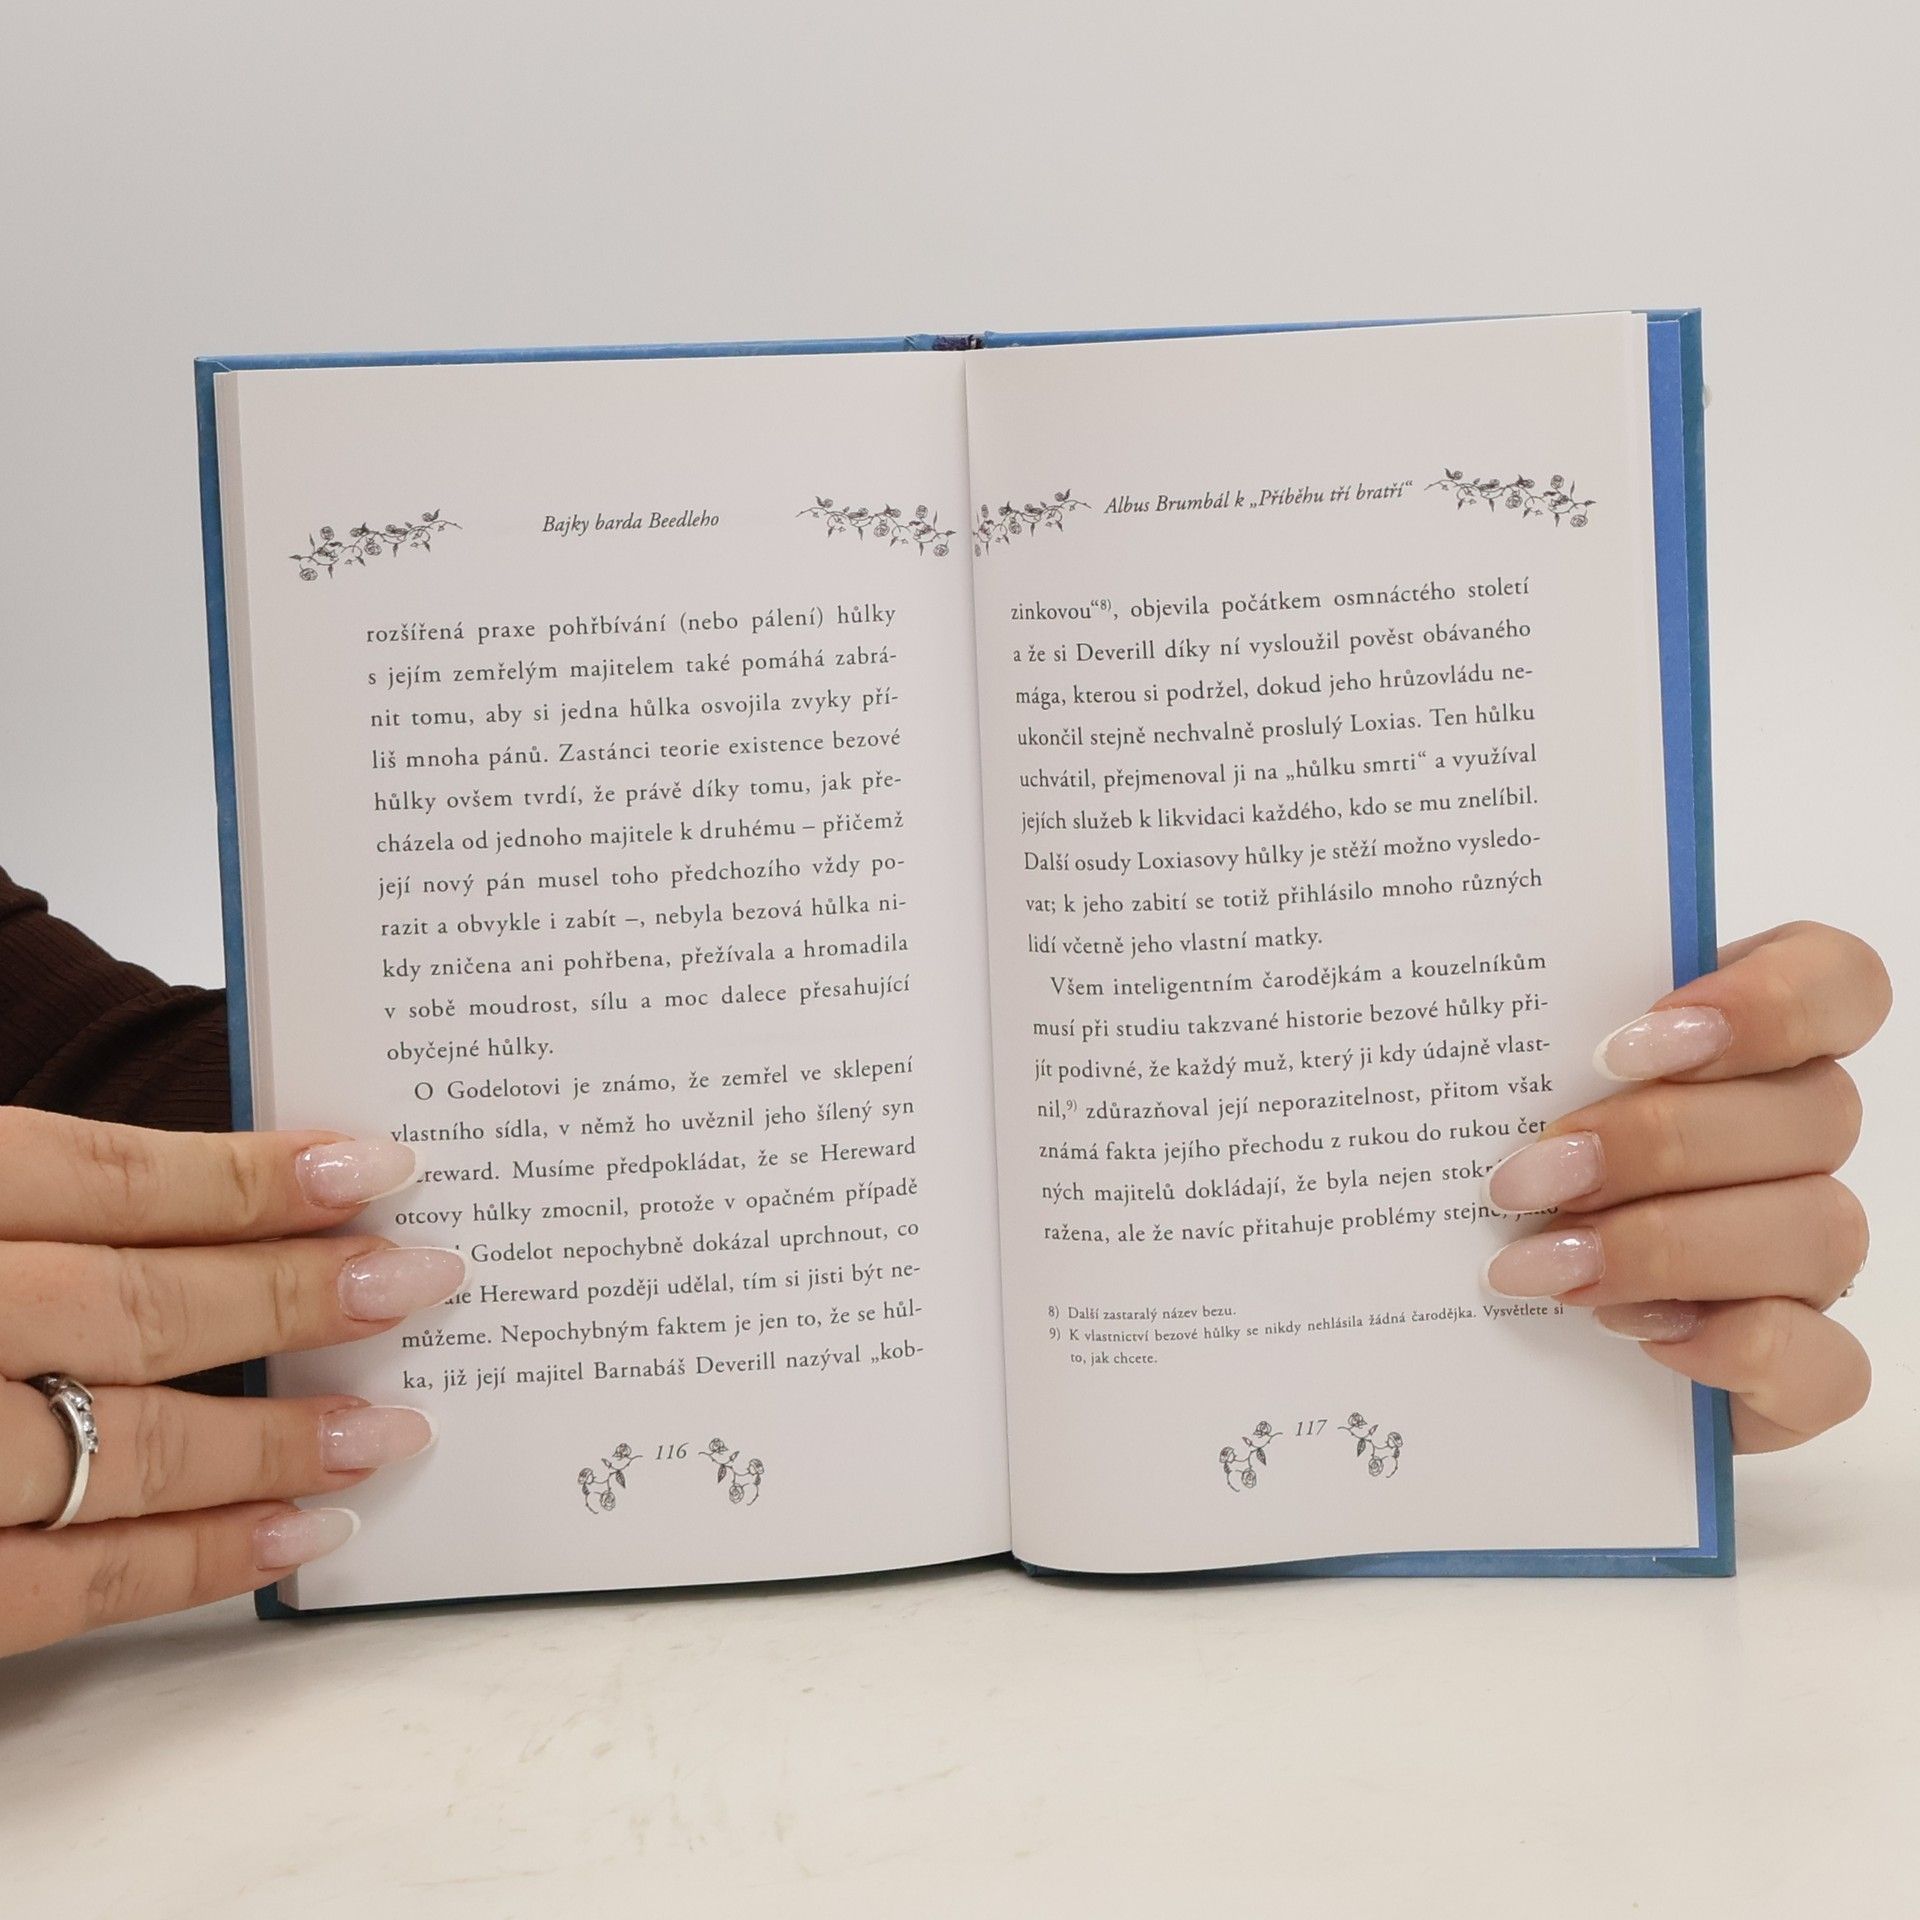 Bajky barda Beedleho
rozšířená praxe pohřbívání (nebo pálení) hůlky
s jejím zemřelým majitelem také pomáhá zabrá-
nit tomu, aby si jedna hůlka osvojila zvyky pří-
liš mnoha pánů. Zastánci teorie existence bezové
hůlky ovšem tvrdí, že právě díky tomu, jak pře-
cházela od jednoho majitele k druhému – přičemž
její nový pán musel toho předchozího vždy po-
razit a obvykle i zabít –, nebyla bezová hůlka ni-
kdy zničena ani pohřbena, přežívala a hromadila
v sobě moudrost, sílu a moc dalece přesahující
obyčejné hůlky.
O Godelotovi je známo, že zemřel ve sklepení
vlastního sídla, v němž ho uvěznil jeho šílený syn
Musíme předpokládat, že se Hereward
otcovy hůlky zmocnil, protože v opačném případě
Godelot nepochybně dokázal uprchnout, co
Hereward později udělal, tím si jisti být ne-
můžeme. Nepochybným faktem je jen to, že se hůl-
ka, již její majitel Barnabáš Deverill nazýval „kob-
116
Albus Brumbál k „Příběhu tří bratří“
zinkovou“8), objevila počátkem osmnáctého století
a že si Deverill díky ní vysloužil pověst obávaného
mága, kterou si podržel, dokud jeho hrůzovládu ne-
ukončil stejně nechvalně proslulý Loxias. Ten hůlku
uchvátil, přejmenoval ji na „hůlku smrti“ a využíval
jejích služeb k likvidaci každého, kdo se mu znelíbil.
Další osudy Loxiasovy hůlky je stěží možno vysledo-
vat; k jeho zabití se totiž přihlásilo mnoho různých
lidí včetně jeho vlastní matky.
Všem inteligentním čarodějkám a kouzelníkům
musí při studiu takzvané historie bezové hůlky při-
jít podivné, že každý muž, který ji kdy údajně vlast-
nil,9) zdůrazňoval její neporazitelnost, přitom však
známá fakta jejího přechodu z rukou do rukou čet-
ných majitelů dokládají, že byla nejen
ražena, ale že navíc přitahuje problémy stejně,
8) Další zastaralý název bezu.
9) K vlastnictví bezové hůlky se nikdy nehlásila žádná čarodějka. Vysvětlete si
to, jak chcete.
117